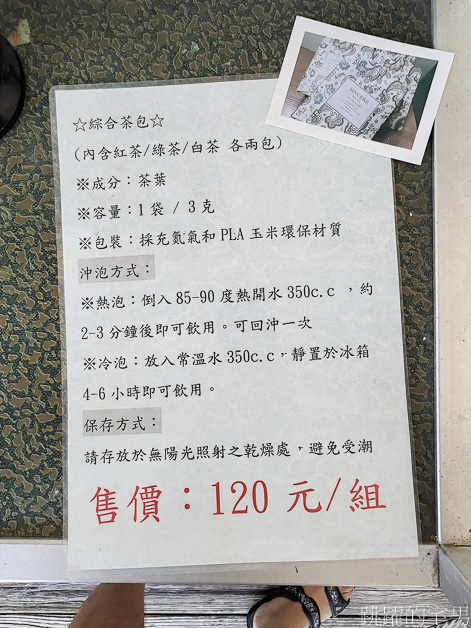 ☆綜合茶包☆
(內含紅茶/綠茶/白茶 各兩包)
※成分：茶葉
※容量：1 袋 / 3 克
※包裝：採充氮氣和 PLA 玉米環保材質
沖泡方式：
※熱泡：倒入 85-90 度熱開水 350c.c ，約
2-3 分鐘後即可飲用。可回沖一次
※冷泡：放入常溫水 350c.c，靜置於冰箱
4-6 小時即可飲用。
保存方式：
請存放於無陽光照射之乾燥處，避免受潮
售價：120 元/組
跳躍的宅男